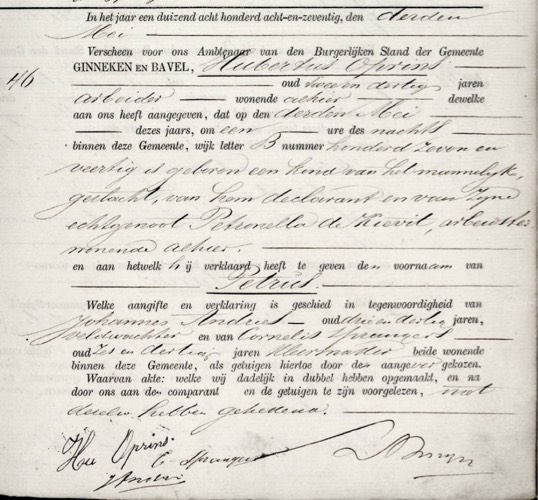 In het jaar een duizend acht honderd acht-en-zeventig, den derden
Mei
Verscheen voor ons Ambtenaar van den Burgerlijken Stand der Gemeente
46 GINNEKEN EN BAVEL, Hubertus Oprins
oud twee en dertig jaren
arbeider wonende alhier dewelke
aan ons heeft aangegeven, dat op den derden Mei
dezes jaars, om een ure des nachts
binnen deze Gemeente, wijk letter B nummer honderd zeven en
veertig is geboren een kind van het mannelijk
geslacht, van hem declarant en van zijne
echtgenoot Petronella de Kievit, arbeidster
wonende alhier.
en aan hetwelk hij verklaard heeft te geven den voornaam van
Petrus
Welke aangifte en verklaring is geschied in tegenwoordigheid van
Johannes Andries oud drie en dertig jaren,
veldwachter en van Cornelis Sprangers
oud zes en dertig jaren kleermaker beide wonende
binnen deze Gemeente, als getuigen hiertoe door den aangever gekozen.
Waarvan akte: welke wij dadelijk in dubbel hebben opgemaakt, en na
door ons aan den comparant en de getuigen te zijn voorgelezen, met
dezelve hebben geteekend.
Hu Oprins.
C. Sprangers
J Andries